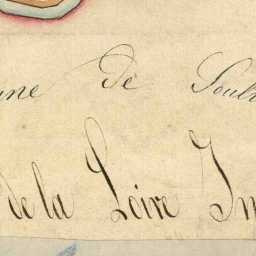 ne de Soul
de la Loire In